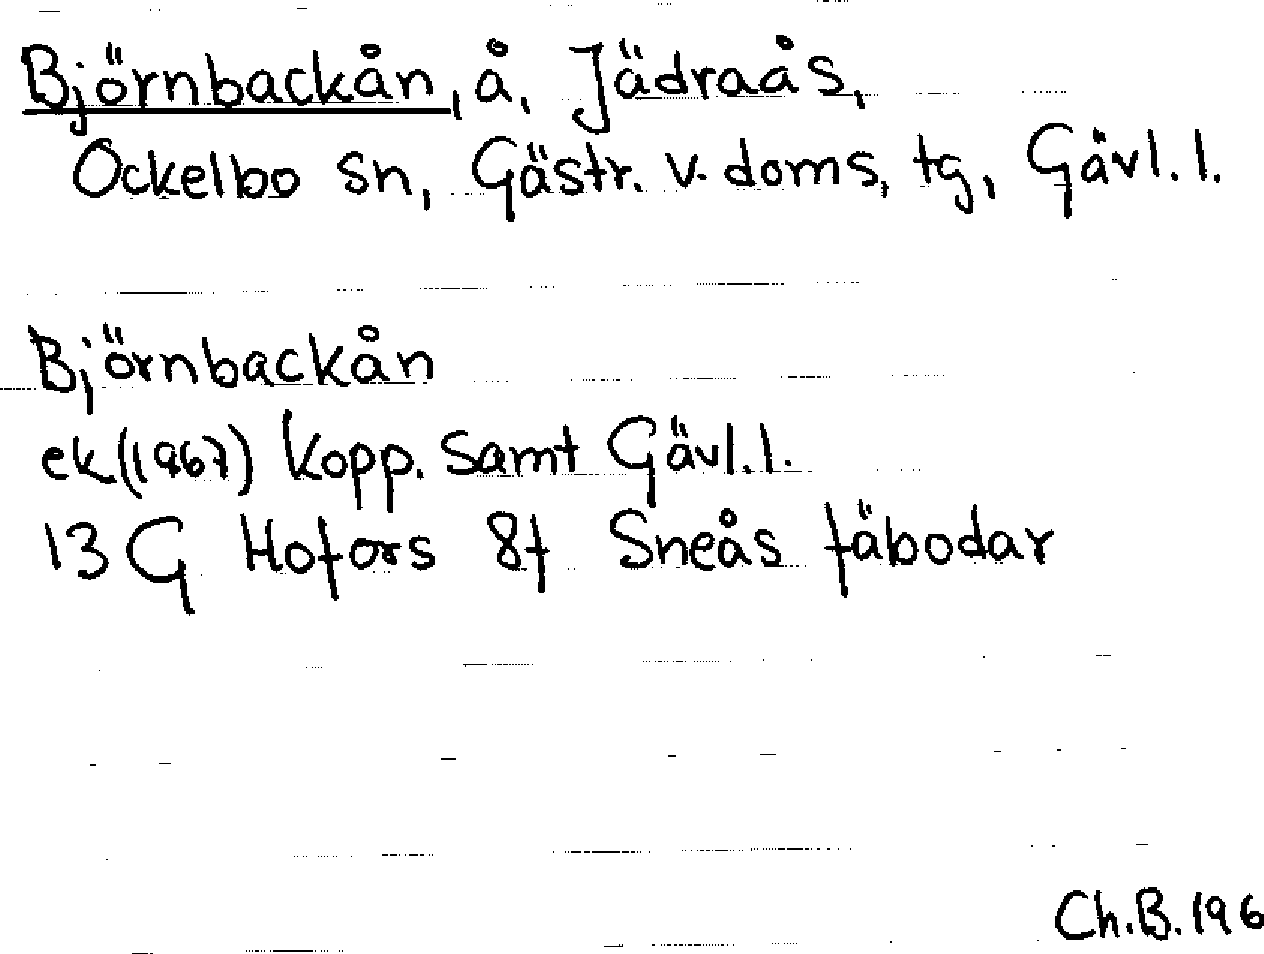 Björnbackån, å, Jädraås,
Ockelbo sn, Gästr. v. doms, tg, Gävl. l.
Björnbackån
ek (1967) Kopp. samt Gävl. l.
13 G Hofors 8f Sneås fäbodar
Ch.B. 196